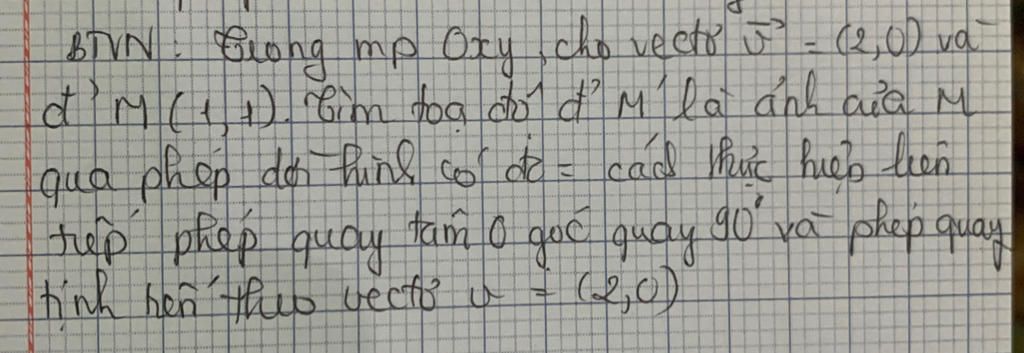 BTVN: Trong mp Oxy, cho vectơ v⃗ = (2,0) và
đ' M (1,1). Tìm tọa độ đ' M' là ảnh của M
qua phép dời hình có đc = cách thực hiện liên
tiếp phép quay tâm O góc quay 90° và phép quay
tịnh tiến theo vectơ v = (2,0)